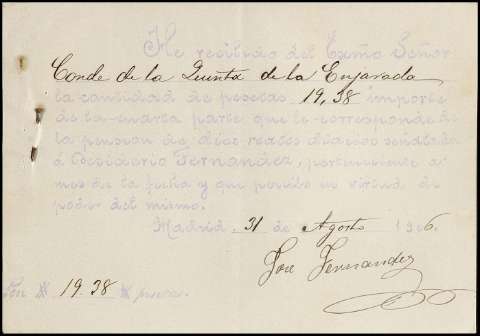 He recibido del Exmo Señor
Conde de la Quinta de la Enjarada
la cantidad de pesetas 19,38 importe
de la cuarta parte que le corresponde de
la pension de diez reales diarios señalada
á Desiderio Fernandez, perteneciente a
mes de la fecha y que percibo en virtud de
poder del mismo.
Madrid 31 de Agosto 1906.
José Fernandez
Son # 19.38 # pesetas.